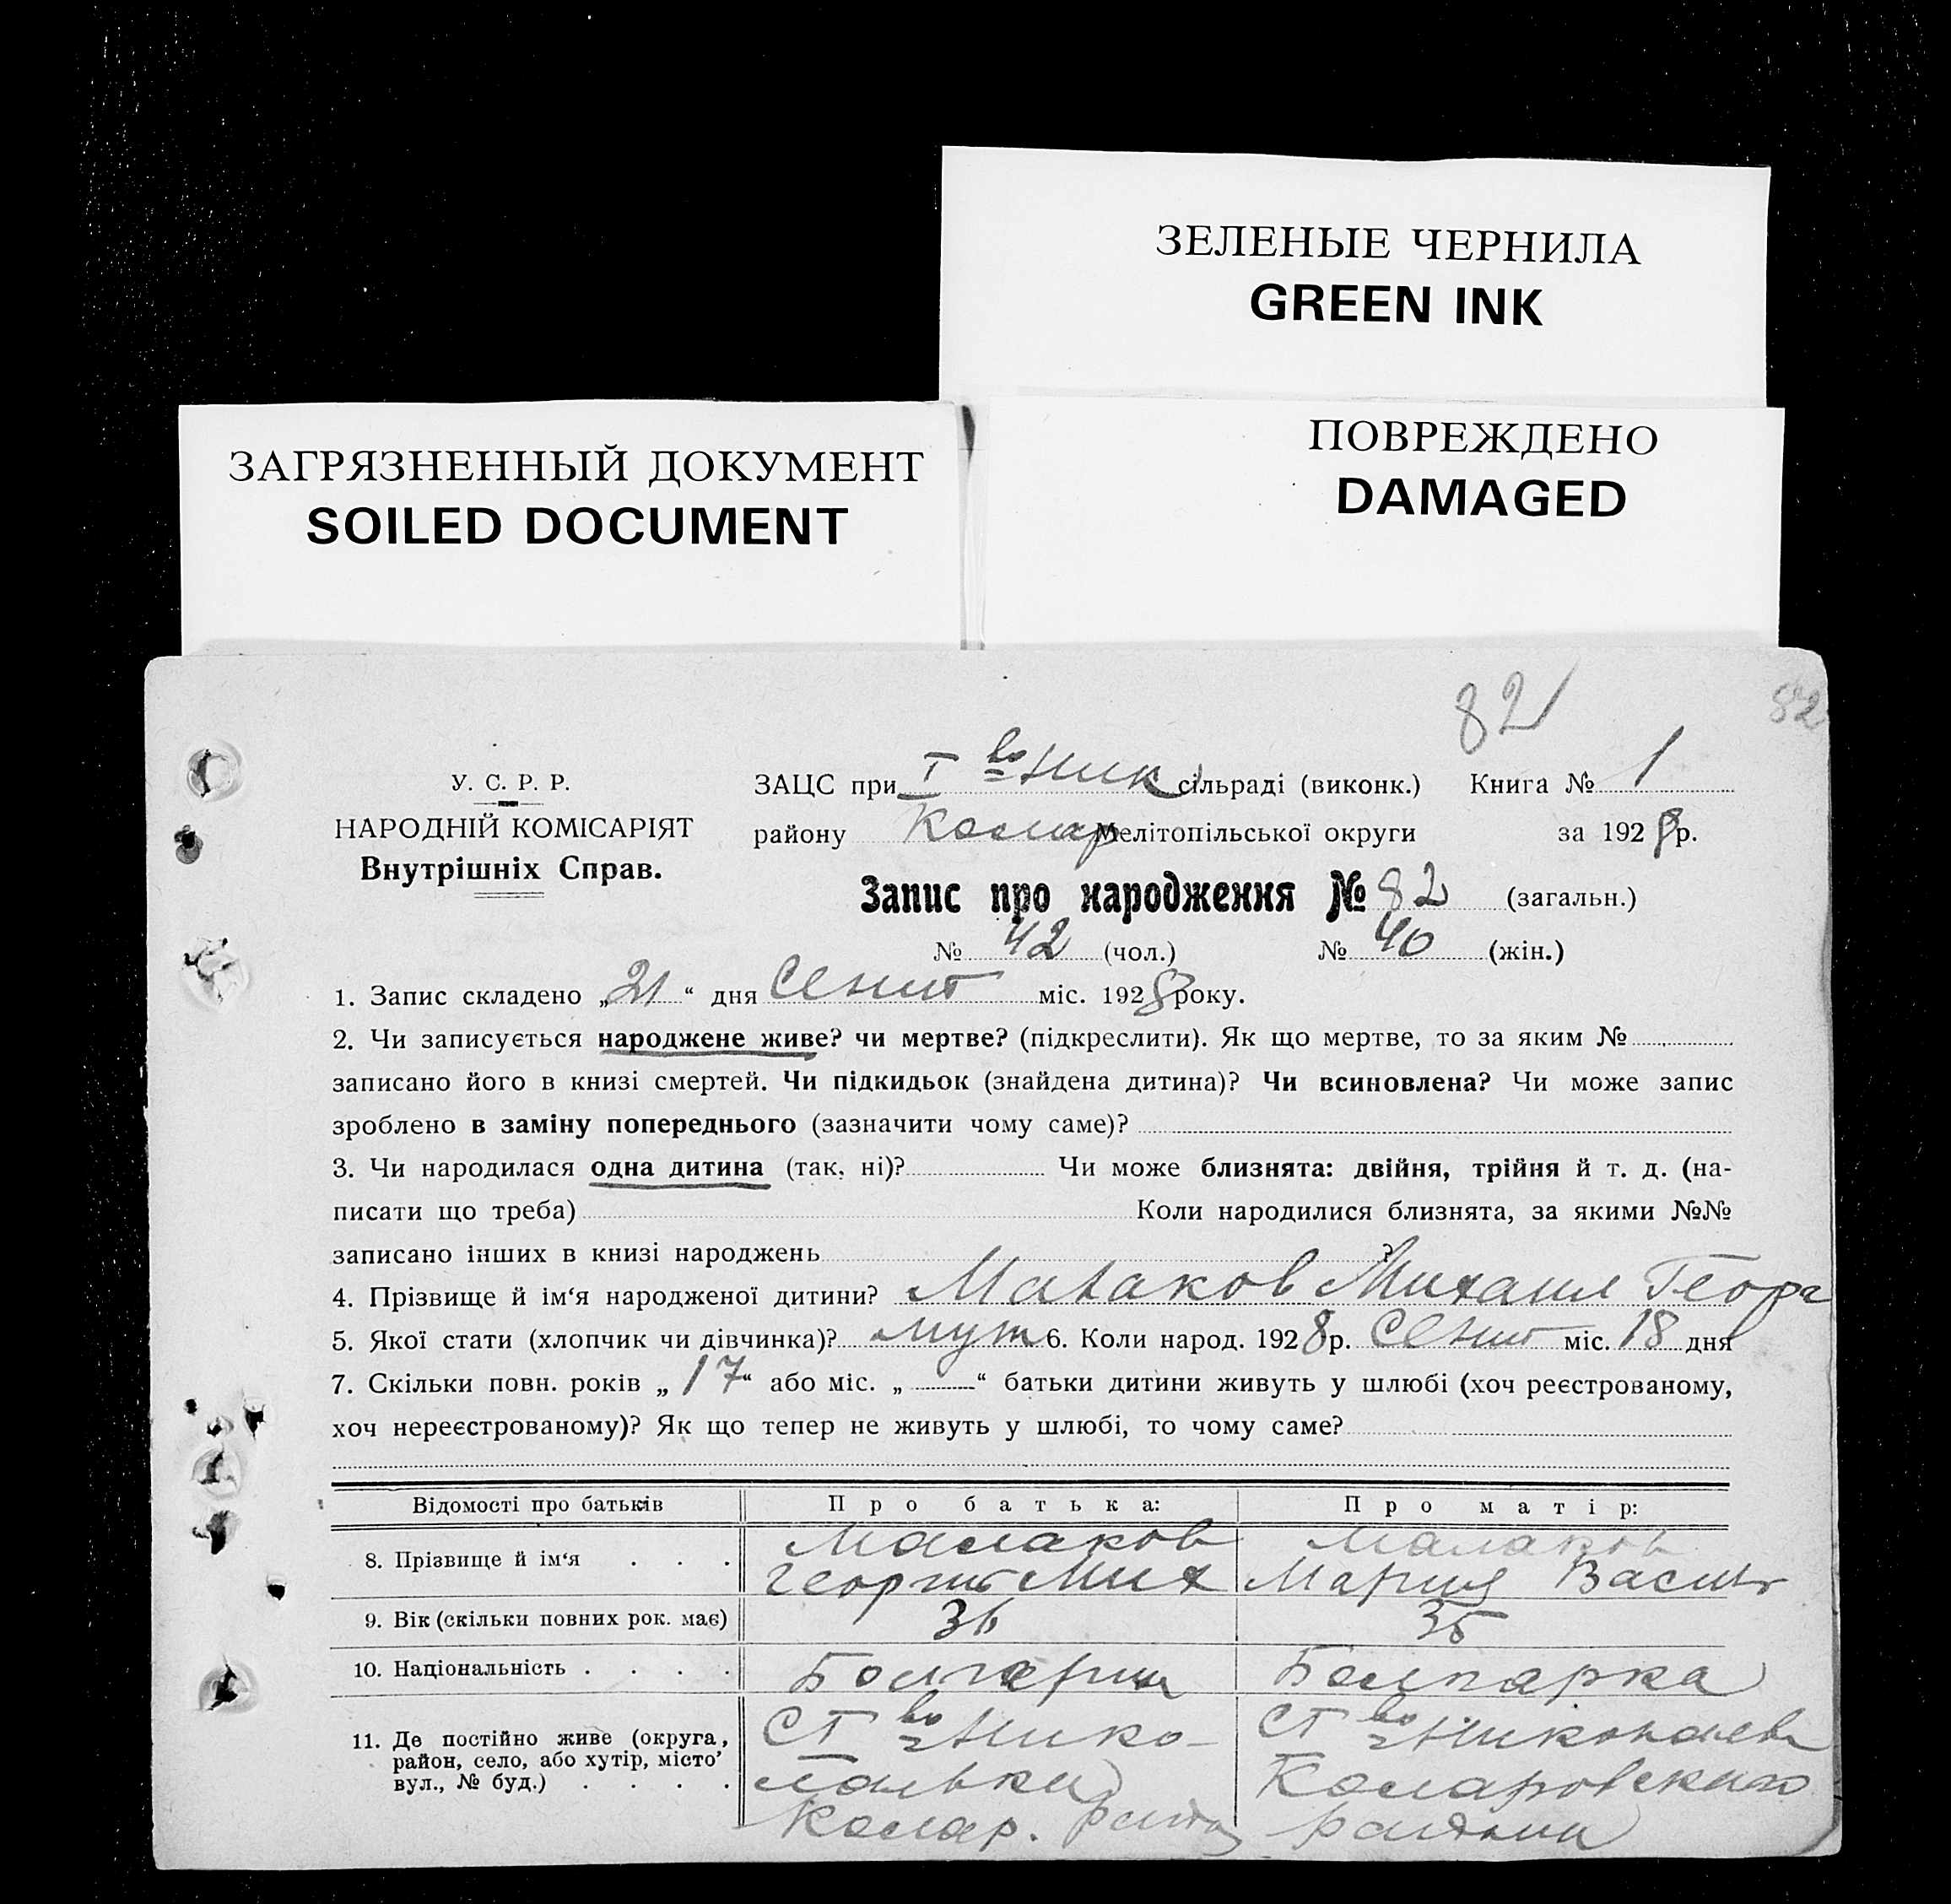 ЗЕЛЕНЫЕ ЧЕРНИЛА
GREEN INK
ЗАГРЯЗНЕННЫЙ ДОКУМЕНТ
SOILED DOCUMENT
ПОВРЕЖДЕНО
DAMAGED
82
82
У. С. Р. Р.
НАРОДНІЙ КОМІСАРІЯТ
Внутрішніх Справ.
ЗАЦС при I во Ник сільраді (виконк.) Книга № 1
району Комар Мелітопільської округи за 1928 р.
Запис про народження № 82 (загальн.)
№ 42 (чол.) № 40 (жін.)
1. Запис складено „21“ дня Сент міс. 1928 року.
2. Чи записується народжене живе? чи мертве? (підкреслити). Як що мертве, то за яким №
записано його в книзі смертей. Чи підкидьок (знайдена дитина)? Чи всиновлена? Чи може запис
зроблено в заміну попереднього (зазначити чому саме)?
3. Чи народилася одна дитина (так, ні)? Чи може близнята: двійня, трійня й т. д. (на-
писати що треба) Коли народилися близнята, за якими №№
записано інших в книзі народжень ?
4. Прізвище й ім‘я народженої дитини? Малаков Михаил Георг
5. Якої стати (хлопчик чи дівчинка)? муж 6. Коли народ. 1928 р. Сент міс. 18 дня
7. Скільки повн. років „17“ або міс. „—“ батьки дитини живуть у шлюбі (хоч реєстрованому,
хоч нереєстрованому)? Як що тепер не живуть у шлюбі, то чому саме?
Відомості про батьків Про батька: Про матір:
8. Прізвище й ім‘я . . . Малаков Георгий Мих Малаков Мария Васил
9. Вік (скільки повних рок. має) 36 35
10. Національність . . . . Болгарин Болгарка
11. Де постійно живе (округа, район, село, або хутір, місто’ вул., № буд.) . . . . СI во Нико-
лаевка
Комар. района
СI во Николаевк
Комаровского
района